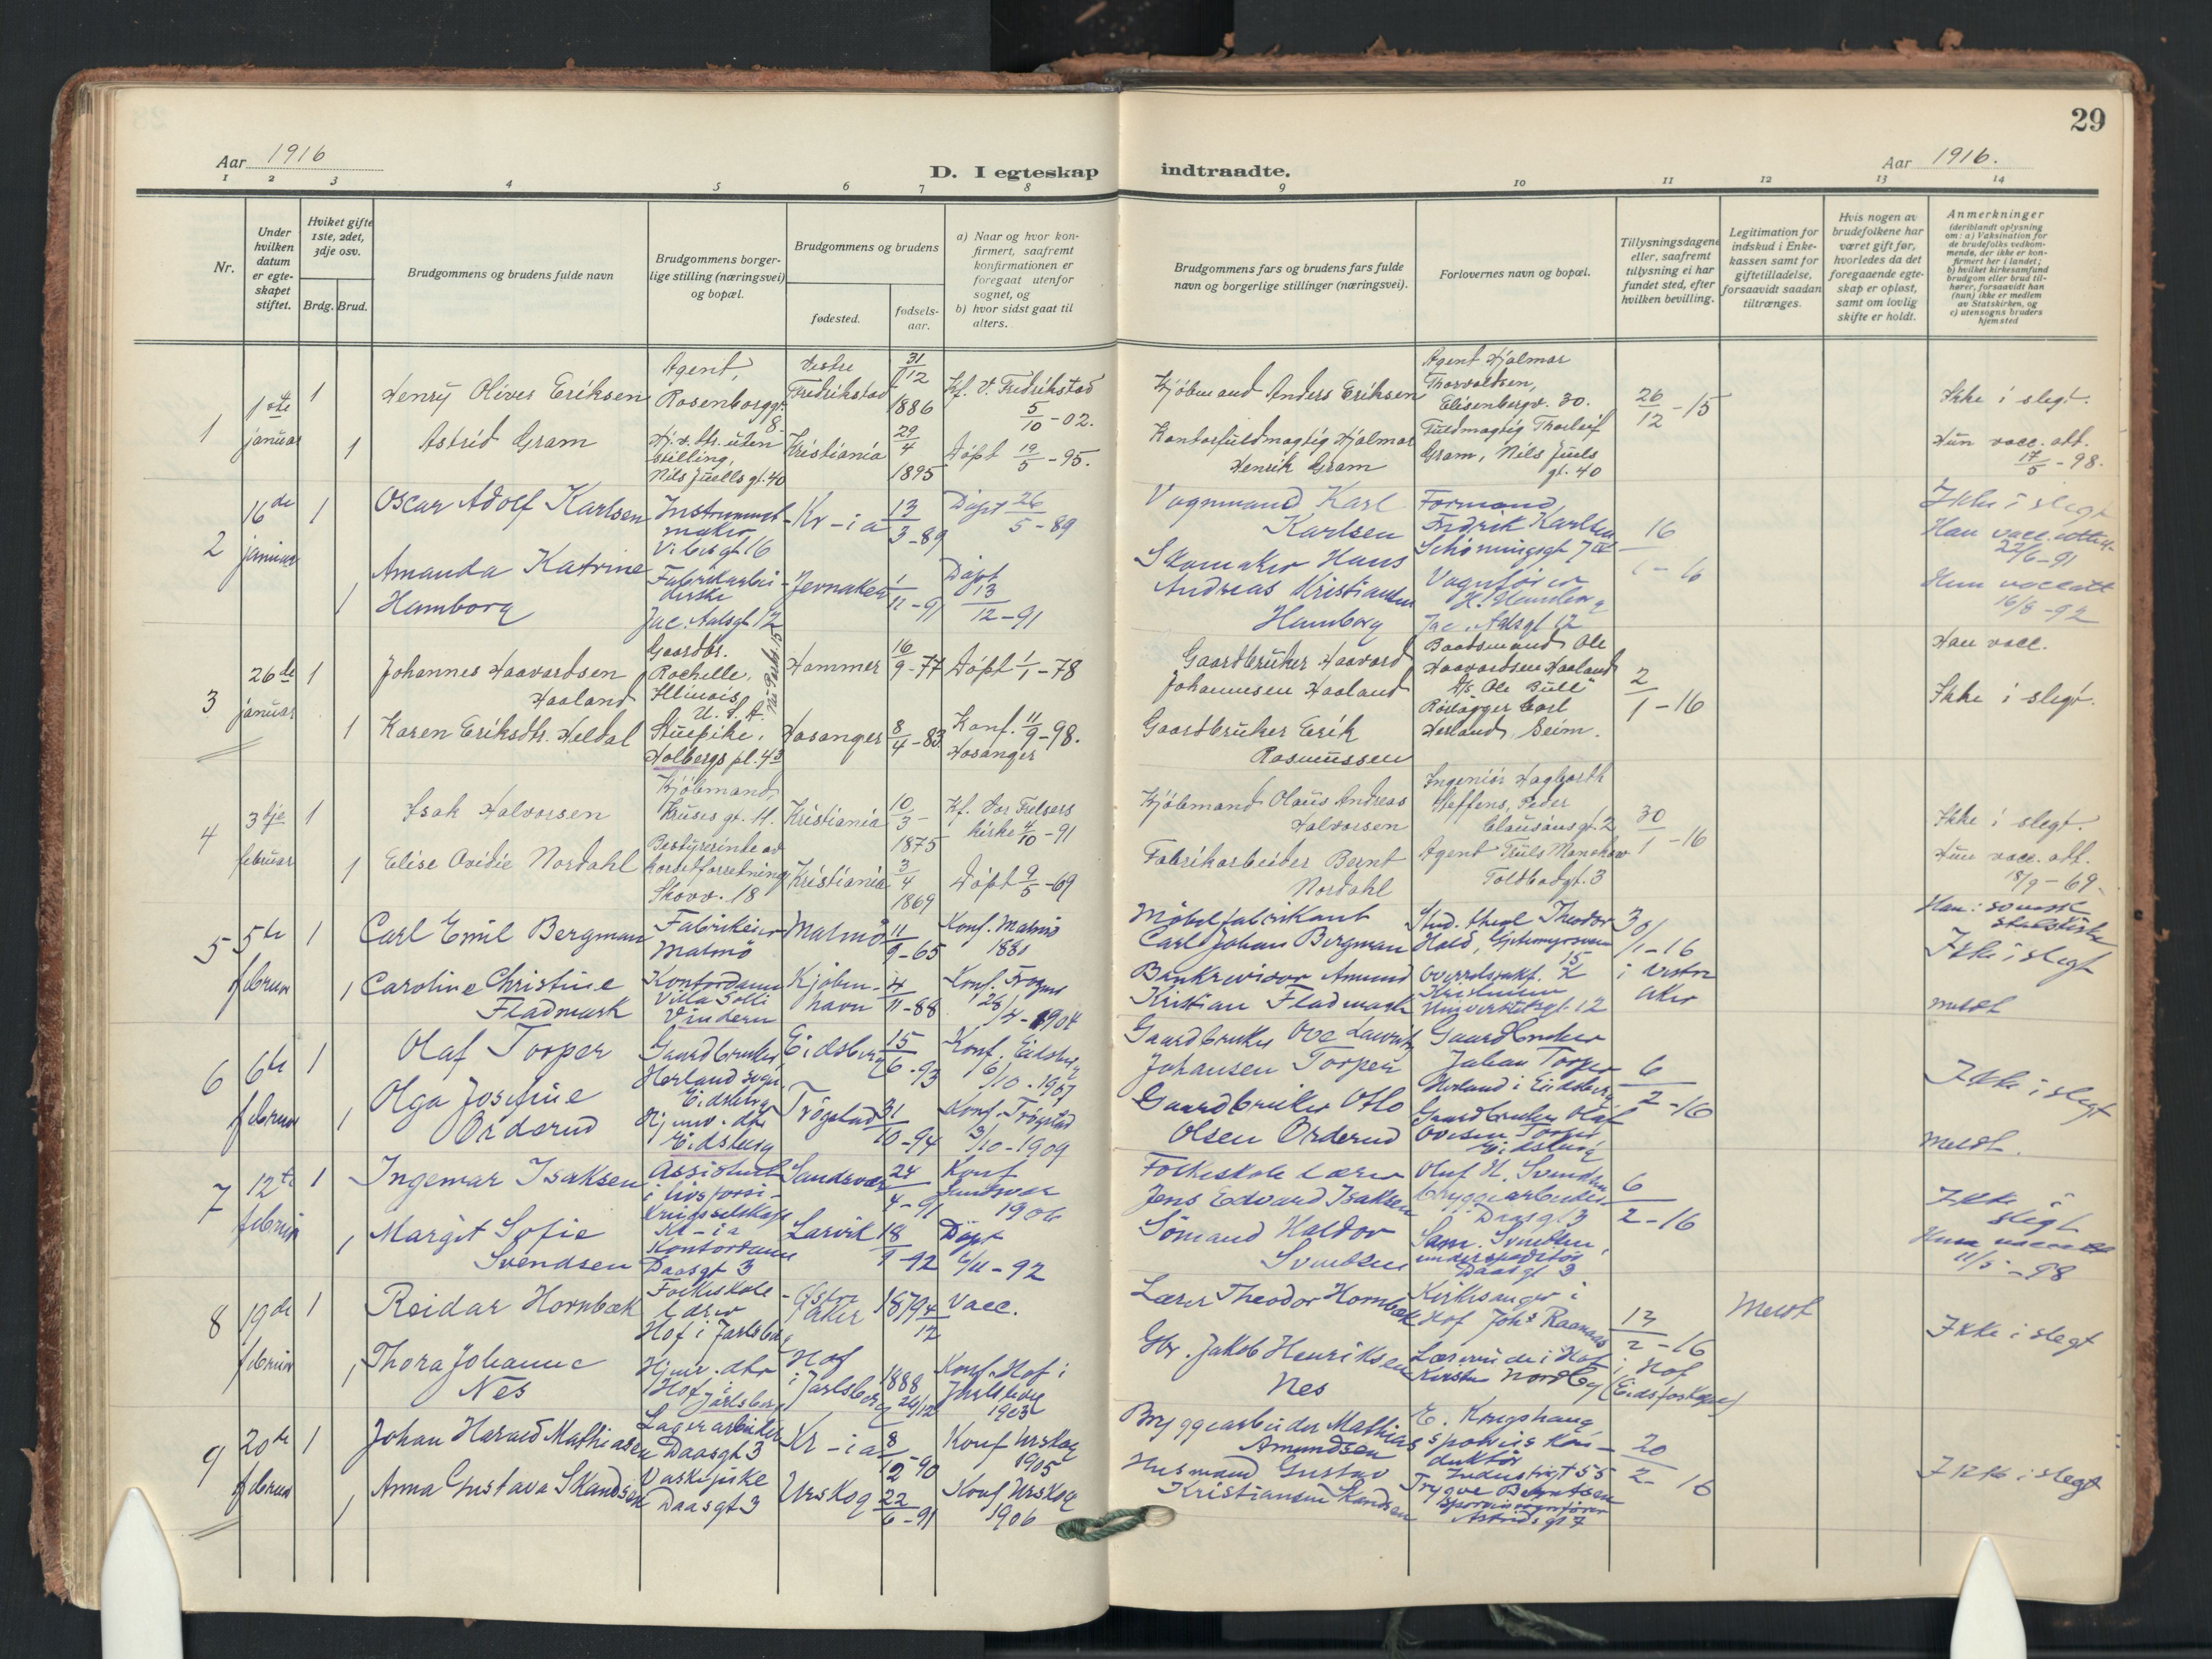 29
Aar 1916
D. I egteskap indtraadte.
Aar 1916.
1 2 3 4 5 6 7 8 9 10 11 12 13 14
Nr.
Under hvilken datum er egteskapet stiftet.
Hviket gifte 1ste, 2det, 3dje osv.
Brdg. Brud.
Brudgommens og brudens fulde navn
Brudgommens borgerlige stilling (næringsvei) og bopæl.
Brudgommens og brudens
fødested.
fødselsaar.
a) Naar og hvor konfirmert, saafremt konfirmationen er foregaat utenfor sognet, og
b) hvor sidst gaat til alters.
Brudgommens fars og brudens fars fulde navn og borgerlige stillinger (næringsvei).
Forlovernes navn og bopæl.
Tillysningsdagene eller, saafremt tillysning ei har fundet sted, efter hvilken bevilling.
Legitimation for indskud i Enkekassen samt for giftetilladelse, forsaavidt saadan tiltrænges.
Hvis nogen av brudefolkene har været gift før, hvorledes da det foregaaende egteskap er opløst, samt om lovlig skifte er holdt.
Anmerkninger (deriblandt oplysning om: a) Vaksination for de brudefolks vedkommende, der ikke er konfirmert her i landet; b) hvilket kirkesamfund brudgom eller brud tilhører, forsaavidt han (hun) ikke er medlem av Statskirken, og c) utensogns bruders hjemsted
1
1ste januar
1
Henry Oliver Eriksen
Agent, Rosenborggt. 8.
Vestre Fredrikstad
31/12 1886
Kf. V. Fredrikstad 5/10 - 02.
Kjøbmand Anders Eriksen
Agent Hjalmar Thorvaldsen, Elisenbergv. 30.
26/12 - 15
Ikke i slegt.
1
Astrid Gram
Hj.v. dtr. uten stilling, Nils Juells gt. 40
Kristiania
29/4 1895
Døpt 19/5 - 95.
Kontorfuldmægtig Hjalmar Henrik Gram
Fuldmægtig Thorleif Gram, Nils Juels gt. 40
Hun vacc. att. 17/5 - 98.
2
16de januar
1
Oscar Adolf Karlsen
Instrumentmaker
Vibes gt 16
Kr-ia
13/3-89
Døpt 26/5 - 89
Vognmand Karl Karlsen
Formand Fredrik Karlsen
Schøningsgt 7 IV
16/1 - 16
Ikke i slegt
Han vacc. attest 22/6-91
1
Amanda Katrine Hamborg
Fabrikarbeiderske
Jac. Aalsgt 12
Jevnaker
1/11 - 91
Døpt 13/12 - 91
Skomaker Hans Andreas Kristiansen Hamborg
Vognfører H. Hamborg
Jac. Aalsgt 12
Hun vacc att 16/8 - 92
3
26de januar
1
Johannes Haavardsen Haaland
Gaardbr. Rochelle, Illinois, U. S. A.
Hammer
16/9 - 77
Døpt 1/1 - 78
Gaardbruker Haavard Johannesen Haaland
Baadsmand Ole Haavardsen Haaland D/S Ole Bull
2/1 - 16
Han vacc.
Ikke i slegt.
1
Karen Eriksdtr. Heldal
Stuepike, Holbergs pl. 4 3
Hosanger
8/4 - 83
Konf. 11/9 - 98. Hosanger
Gaardbruker Erik Rasmussen
Rørlægger Carl Herland, Seim.
4
3dje februar
1
Isak Halvorsen
Kjøbmand, Kruses gt. 11.
Kristiania
10/3 - 1875
Kf. Vor Frelsers kirke 4/10 - 91
Kjøbmand Olaus Andreas Halvorsen
Ingeniør Hagbarth Steffens, Peder Clausønsgt. 2
30/1 - 16
Ikke i slegt.
1
Elise Ovidie Nordahl
Bestyrerinde av korsetforretning Skovv. 18
Kristiania
3/4 1869
Døpt 9/5 - 69
Fabrikarbeider Bernt Nordahl
Agent Truls
Toldbodgt. 3
Hun vacc. att. 18/9 - 69.
5
5te februar
1
Carl Emil Bergman
Fabrikeier Malmø
Malmø
11/9 - 65
Konf. Malmø 1881
Møbelfabrikant Carl Johan Bergman
Stud. theol Theodor Hald,
30/1 - 16 i Vestre Aker
Han: svensk statskirke
Ikke i slegt
1
Caroline Christine Fladmark
Kontordame Villa Solli Vindern
Kjøbenhavn
4/11 - 88
Konf. Frogner 1904
Bankrevisor Amund Kristian Fladmark
Universitetsgt. 12
meldt
6
6te februar
1
Olaf Torper
Gaardbruker Herland sogn Eidsberg
Eidsberg
15/6 - 93
Konf. Eidsberg 6/10 - 1907
Gaardbruker Ove Lauritz Johansen Torper
Gaardbruker Johan Torper Herland i Eidsberg
6/2 - 16
Ikke i slegt
1
Olga Josefine Orderud
Hjemv. dtr Eidsberg
Trøgstad
31/10 - 94
Konf. Trøgstad 3/10 - 1909
Gaardbruker Otto Olsen Orderud
Gaardbruker Olaf Ovesen Torper Eidsberg
meldt.
7
12te februar
1
Ingemar Isaksen
Assistent i livsforsikringsselskap Kr-ia
Sandsvær
24/4 - 91
Konf Sandsvær 1906
Folkeskole lærer Jens Edvard Isaksen
Oluf H. Svendsen bryggearbeider Daasgt 3
6/2 - 16
Ikke i slegt
1
Margit Sofie Svendsen
Kontordame Daasgt 3
Larvik
18/9 - 92
Døpt 6/11 - 92
Sømand Haldor Svendsen
Sam. Svendsen, underspeditør Daasgt 3
Hun vacc att 11/5 - 98
8
19de februar
1
Reidar Hornbæk
Folkeskolelærer Hof i Jarlsberg
Østre Aker
1879 4/12
Vacc.
Lærer Theodor Hornbæk
Kirkesanger i Hof Johs Raanaas
13/2 - 16 i Hof (Eidsfoskapel)
Meldt
Ikke i slegt
1
Thora Johanne Nes
Hjemv. dtr Hof i Jarlsberg
Hof i Jarlsberg
1888 24/12
Konf. Hof i Jarlsberg 1903
Gbr. Jakob Henriksen Nes
Lærerinde i Hof Kirsten Nordby
9
20de februar
1
Johan Harald Mathiasen
Lagerarbeider Daasgt 3
Kr-ia
8/12 - 90
Konf Urskog 1905
Bryggearbeider Mathias Amundsen
E. Kongshaug sporveiskonduktør Industrigt 55
20/2 - 16
Ikke i slegt
1
Anna Gustava Skandsen
Vaskepike Daasgt 3
Urskog
22/6 - 91
Konf Urskog 1906
Husmand Gustav Kristiansen Skandsen
Trygve Berntsen
Astrids gt 7